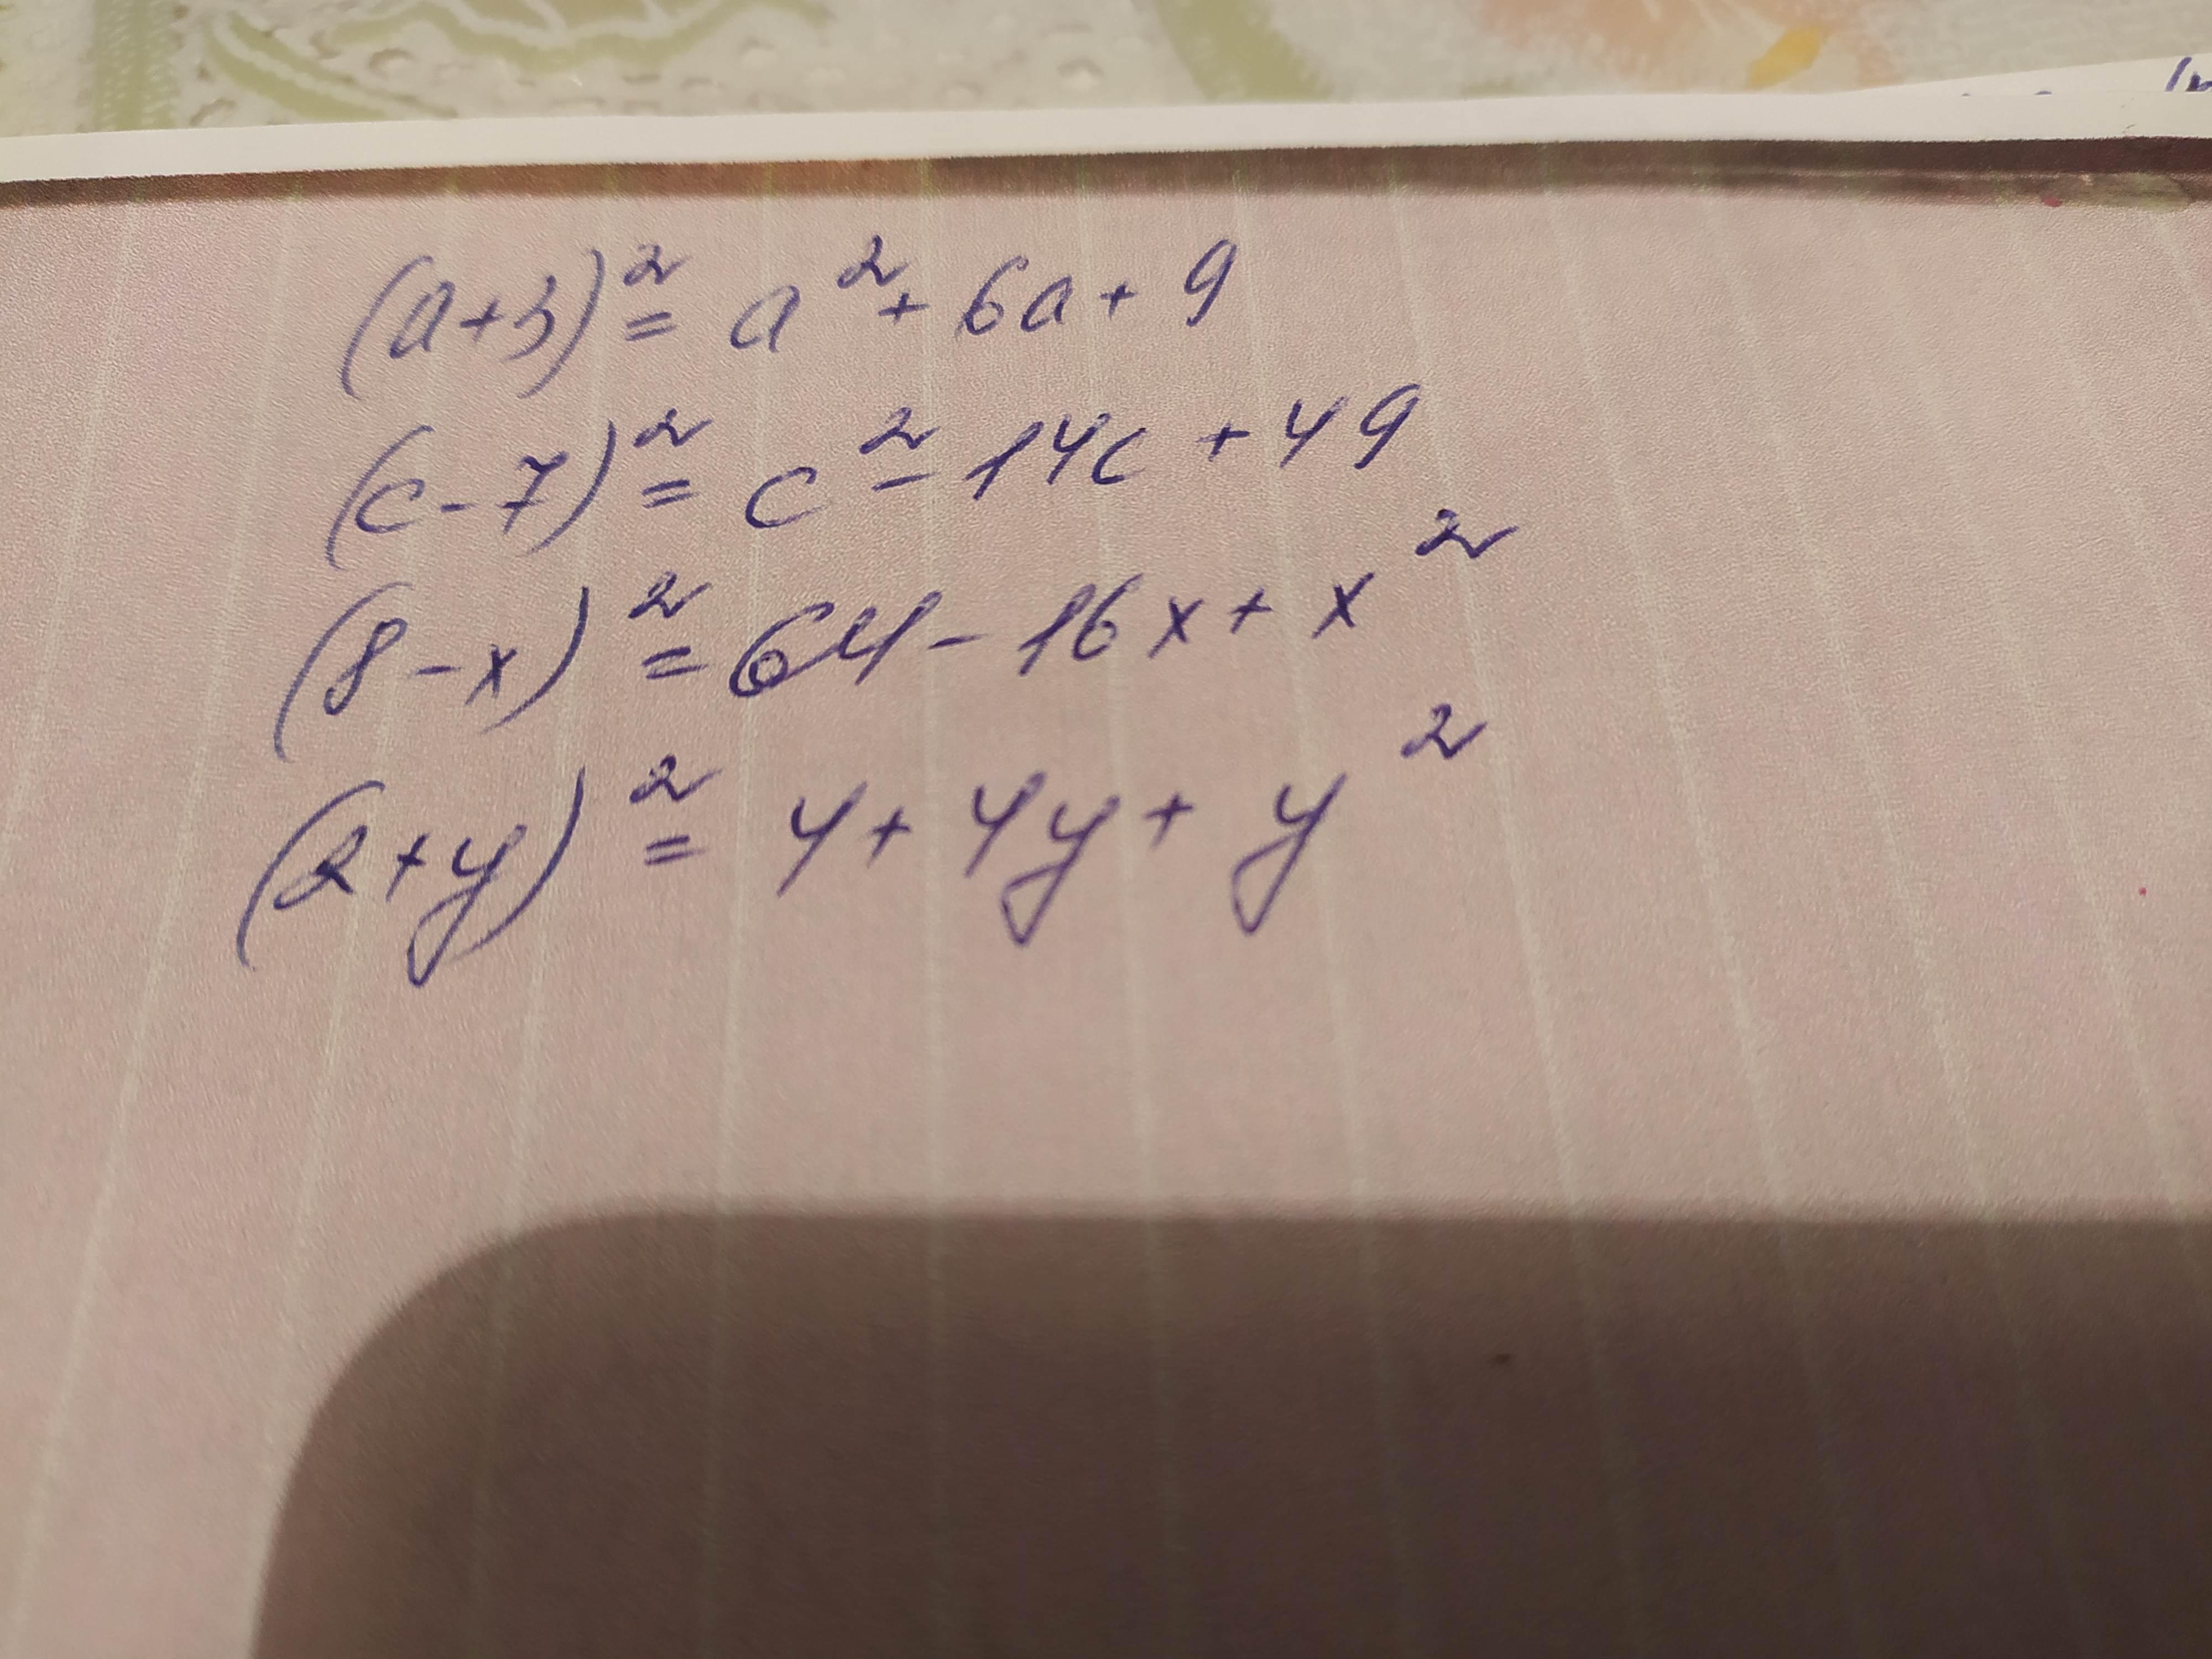 (a+3)² = a² + 6a + 9
(c-7)² = c² - 14c + 49
(8-x)² = 64 - 16x + x²
(2+y)² = 4 + 4y + y²